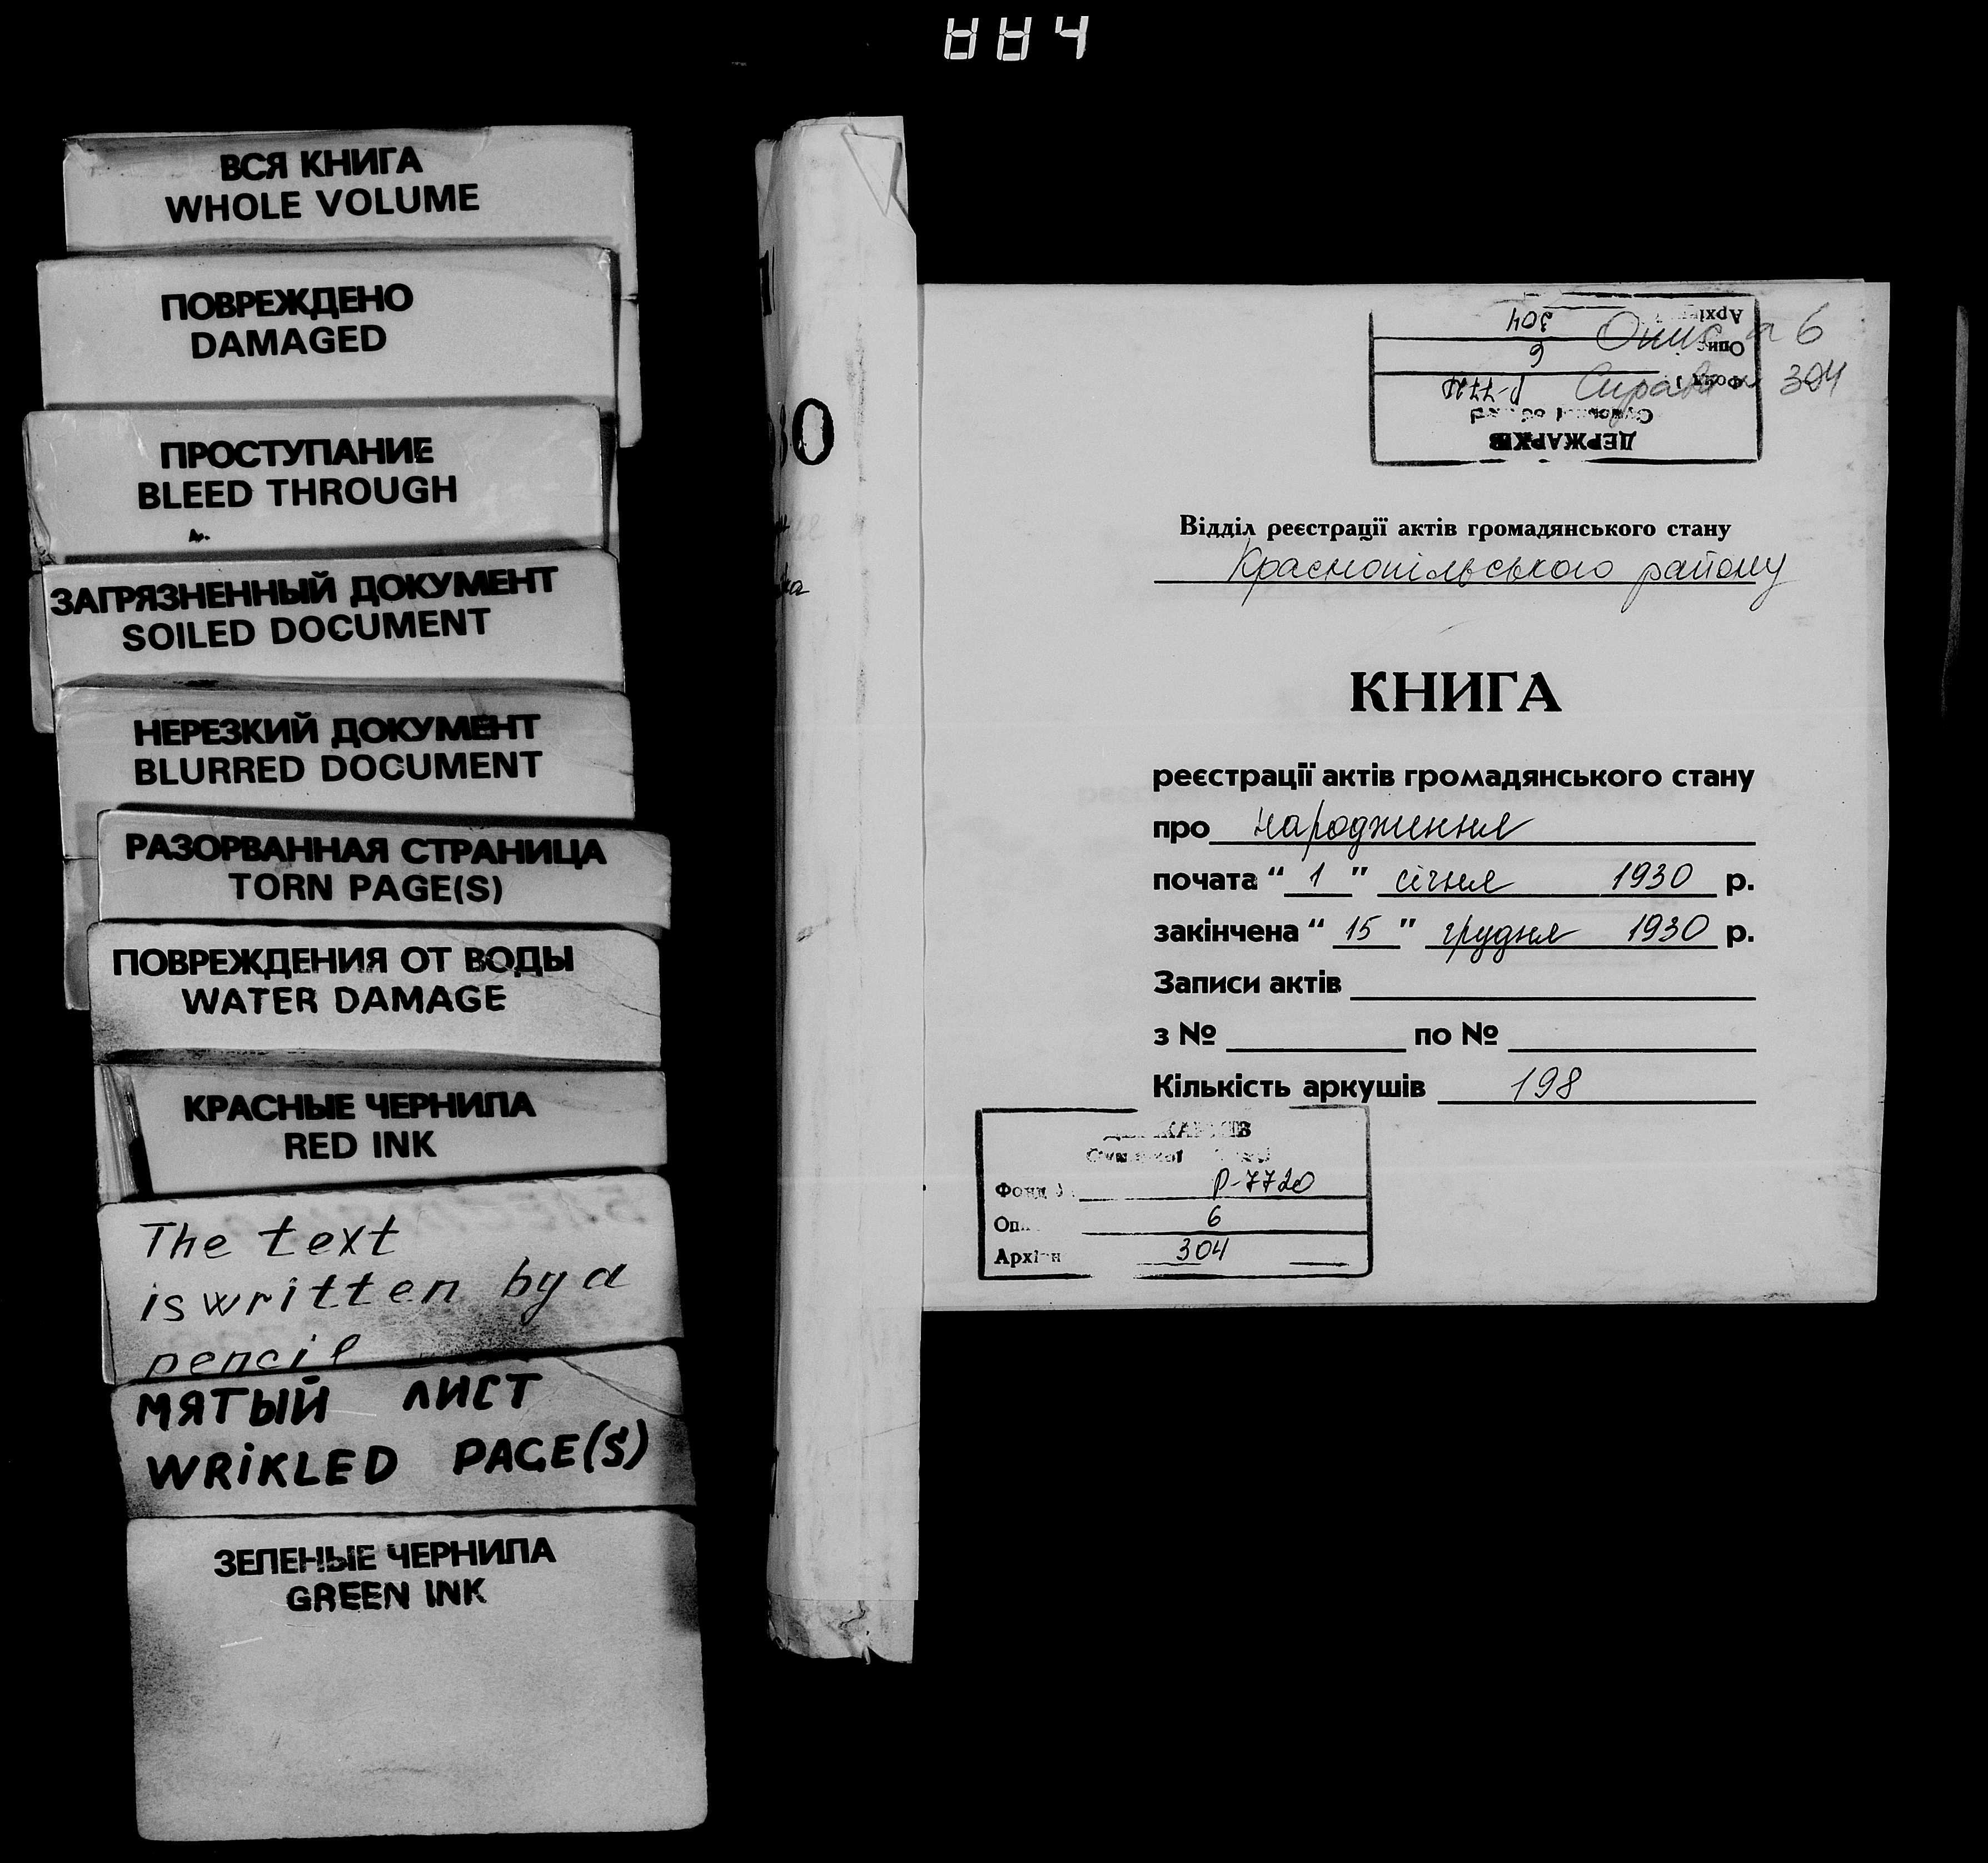 ВСЯ КНИГА
WHOLE VOLUME
ПОВРЕЖДЕНО
DAMAGED
ПРОСТУПАНИЕ
BLEED THROUGH
ЗАГРЯЗНЕННЫЙ ДОКУМЕНТ
SOILED DOCUMENT
НЕРЕЗКИЙ ДОКУМЕНТ
BLURRED DOCUMENT
РАЗОРВАННАЯ СТРАНИЦА
TORN PAGE(S)
ПОВРЕЖДЕНИЯ ОТ ВОДЫ
WATER DAMAGE
КРАСНЫЕ ЧЕРНИЛА
RED INK
The text
is written by a
pencil
МЯТЫЙ ЛИСТ
WRIKLED PAGE(S)
ЗЕЛЕНЫЕ ЧЕРНИЛА
GREEN INK
Опис 6
Справа 304
ДЕРЖАРХІВ
Фонд Р-7720
Опис 6
304
Відділ реєстрації актів громадянського стану
Краснопільського району
КНИГА
реєстрації актів громадянського стану
про народження
почата " 1 " січня 1930 р.
закінчена " 15 " грудня 1930 р.
Записи актів
з № по №
Кількість аркушів 198
Фонд Р-7720
6
304